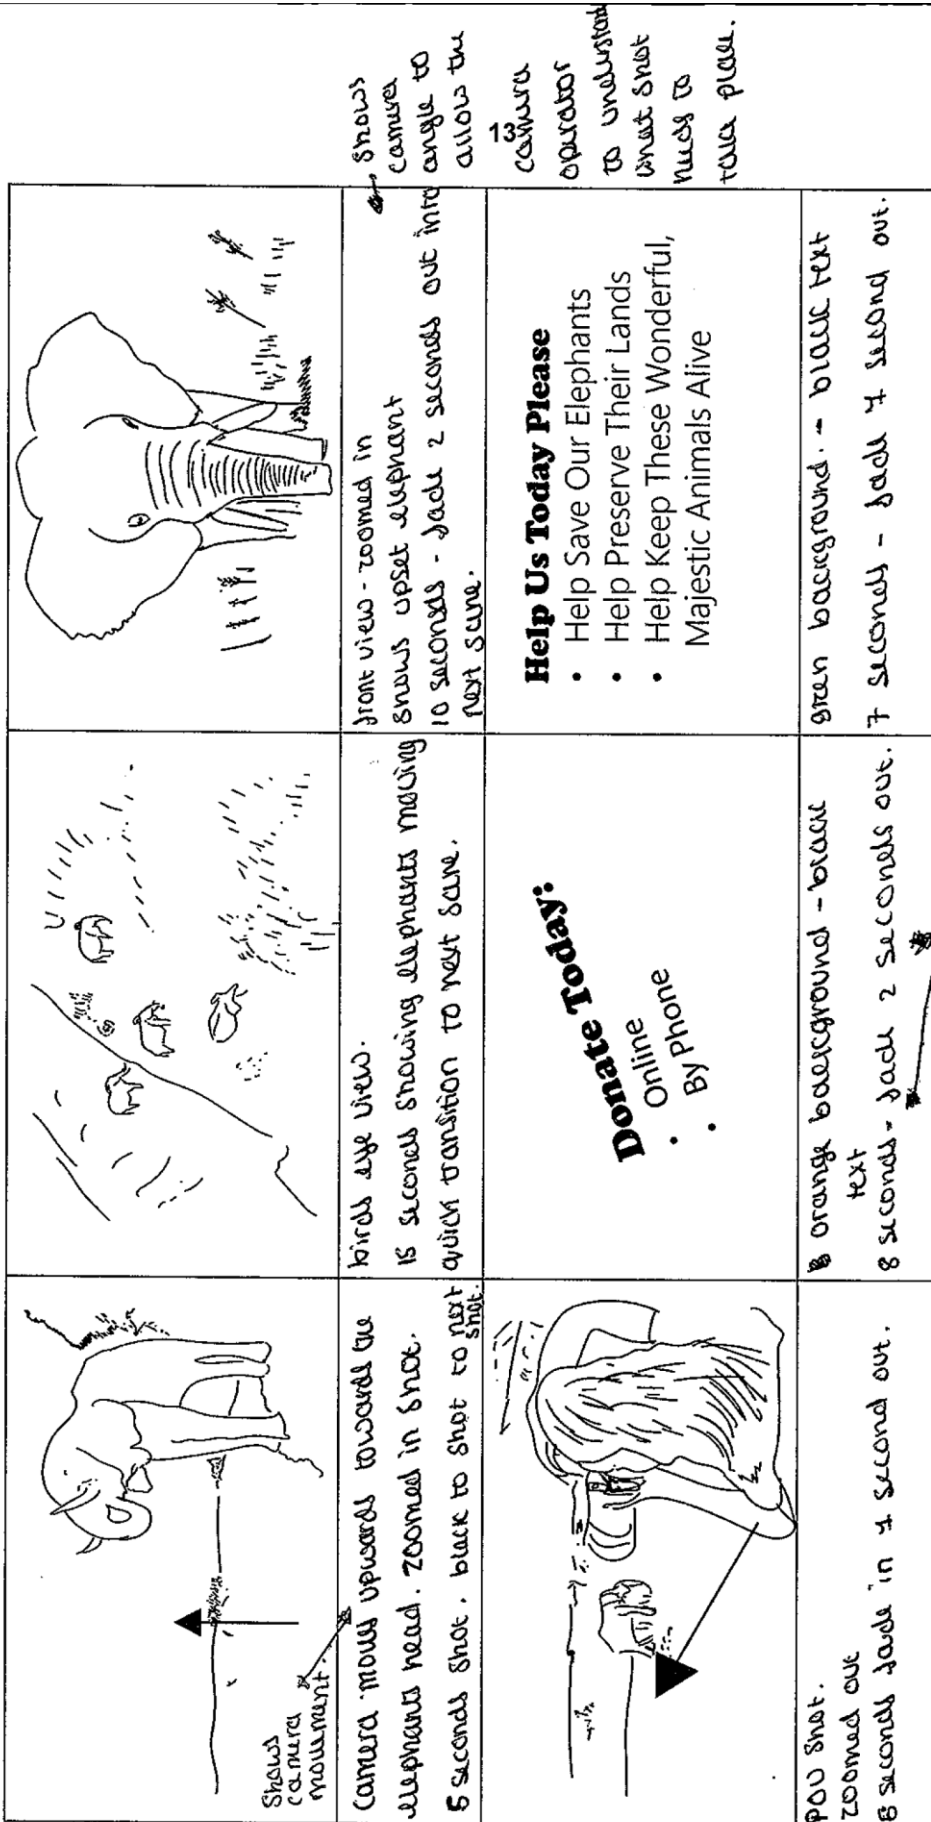 Shows
camera
movement.
Camera moves upwards towards the
elephants head. zoomed in shot.
5 seconds shot. black to shot to next
shot.
birds eye view.
15 seconds showing elephants moving
quick transition to next scene.
front view - zoomed in
shows upset elephant
10 seconds - fade 2 seconds out into
next scene.
Shows
camera
angle to
allow the
camera
operator
to understand
what shot
needs to
take place.
13
POV shot.
zoomed out
8 seconds fade in 1 second out.
Donate Today:
• Online
• By Phone
orange background - black
text
8 seconds - fade 2 seconds out.
Help Us Today Please
• Help Save Our Elephants
• Help Preserve Their Lands
• Help Keep These Wonderful,
Majestic Animals Alive
green background. - black text
7 seconds - fade 1 second out.